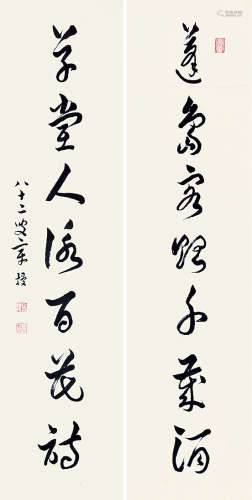 蓬島客賜千歲酒
草堂人詠百花詩
八十二叟章梫